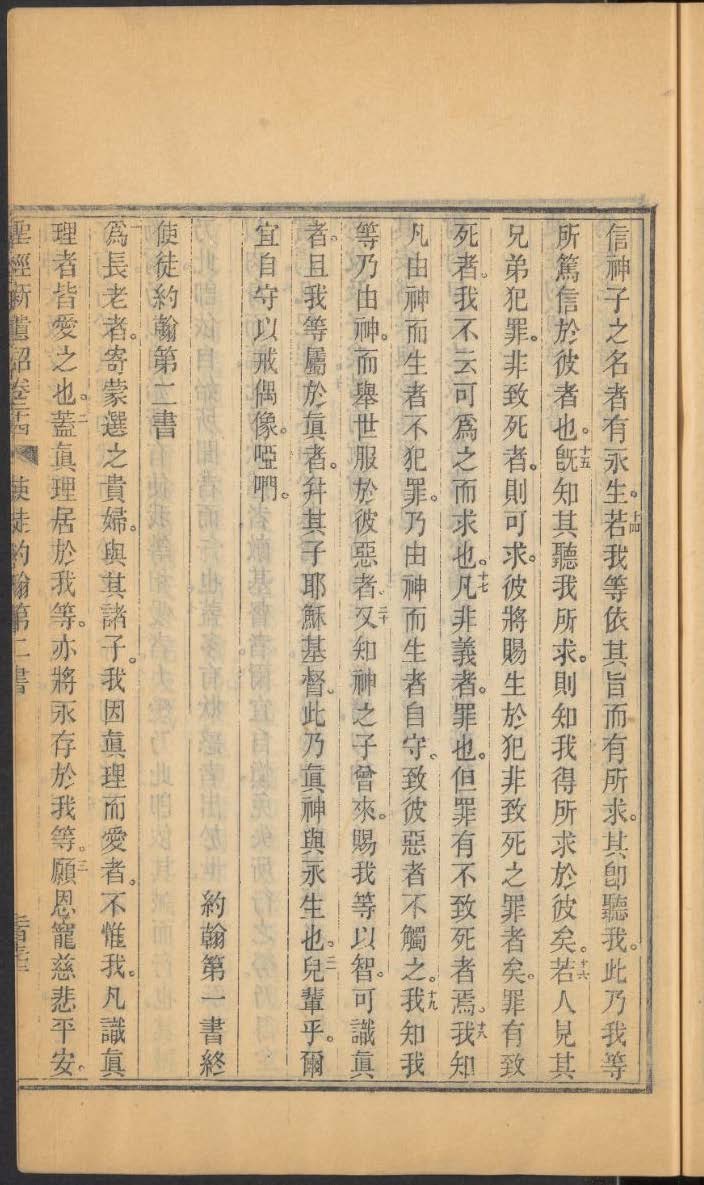 信神子之名者有永生。十四若我等依其旨而有所求。其卽聽我。此乃我等
所篤信於彼者也。十五旣知其聽我所求。則知我得所求於彼矣。十六若人見其
兄弟犯罪。非致死者。則可求。彼將賜生於犯非致死之罪者矣。罪有致
死者。我不云可爲之而求也。十七凡非義者。罪也。但罪有不致死者焉。十八我知
凡由神而生者不犯罪。乃由神而生者自守。致彼惡者不觸之。十九我知我
等乃由神。而舉世服於彼惡者。二十又知神之子曾來。賜我等以智。可識眞
者。且我等屬於眞者。幷其子耶穌基督。此乃眞神與永生也。二一兒輩乎。爾
宜自守以戒偶像。啞㗒。
約翰第一書終
使徒約翰第二書
一爲長老者。寄蒙選之貴婦。與其諸子。我因眞理而愛者。不惟我。凡識眞
理者皆愛之也。二蓋眞理居於我等。亦將永存於我等。三願恩寵慈悲平安。
聖經新遺詔卷 使徒約翰第二書